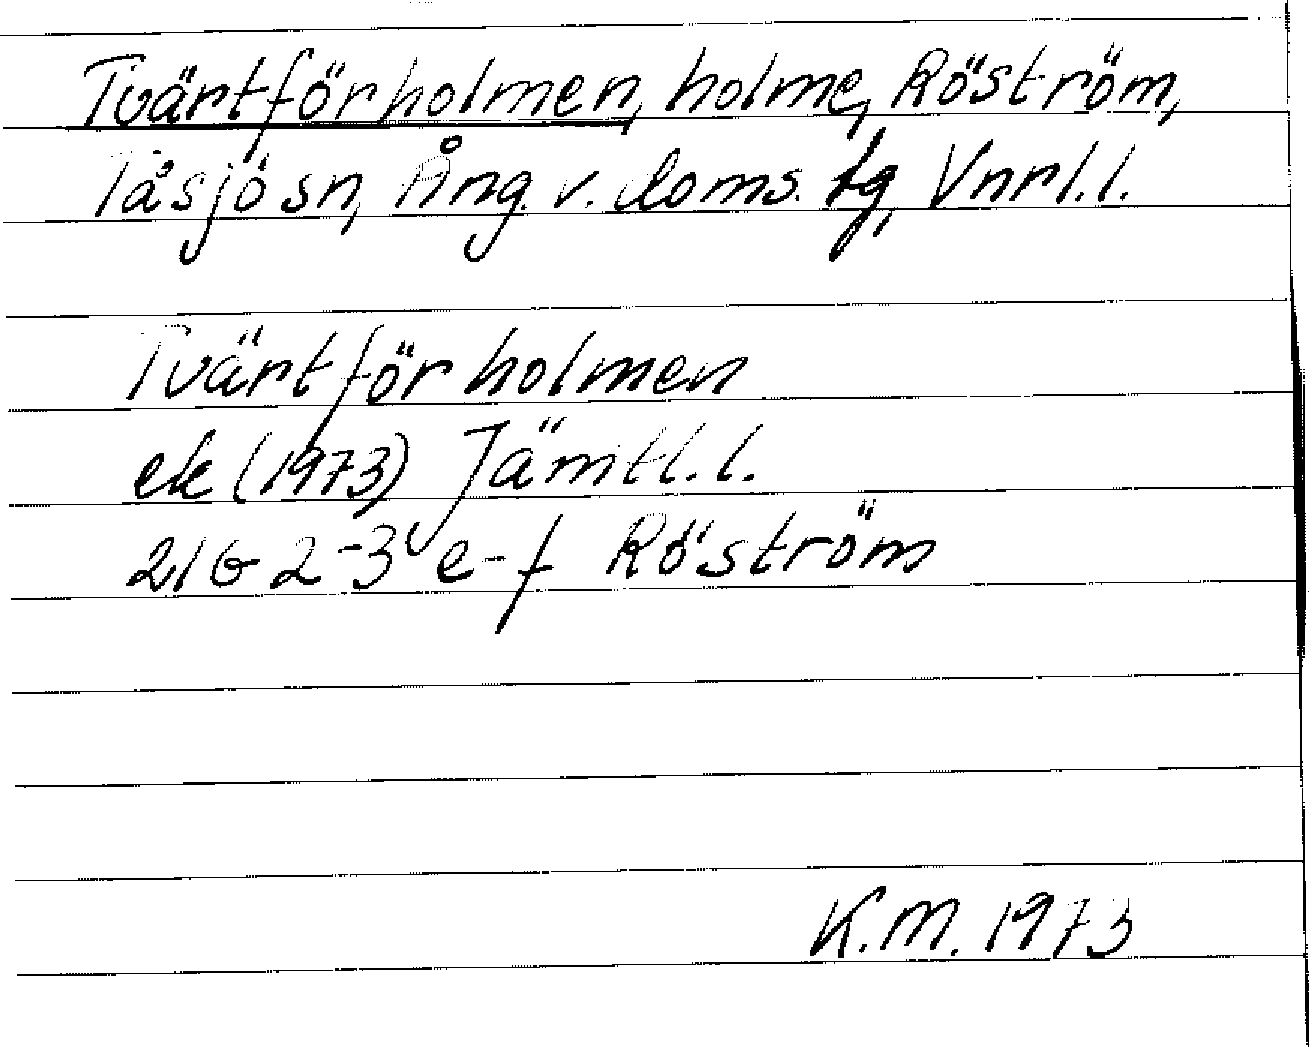 Tvärtförholmen, holme, Röström,
Tåsjö sn, Ång. v. doms. tg, Vnrl.l.
Tvärtförholmen
ek (1973) Jämtl.l.
21G 2-3 e-f Röström
K.M. 1973